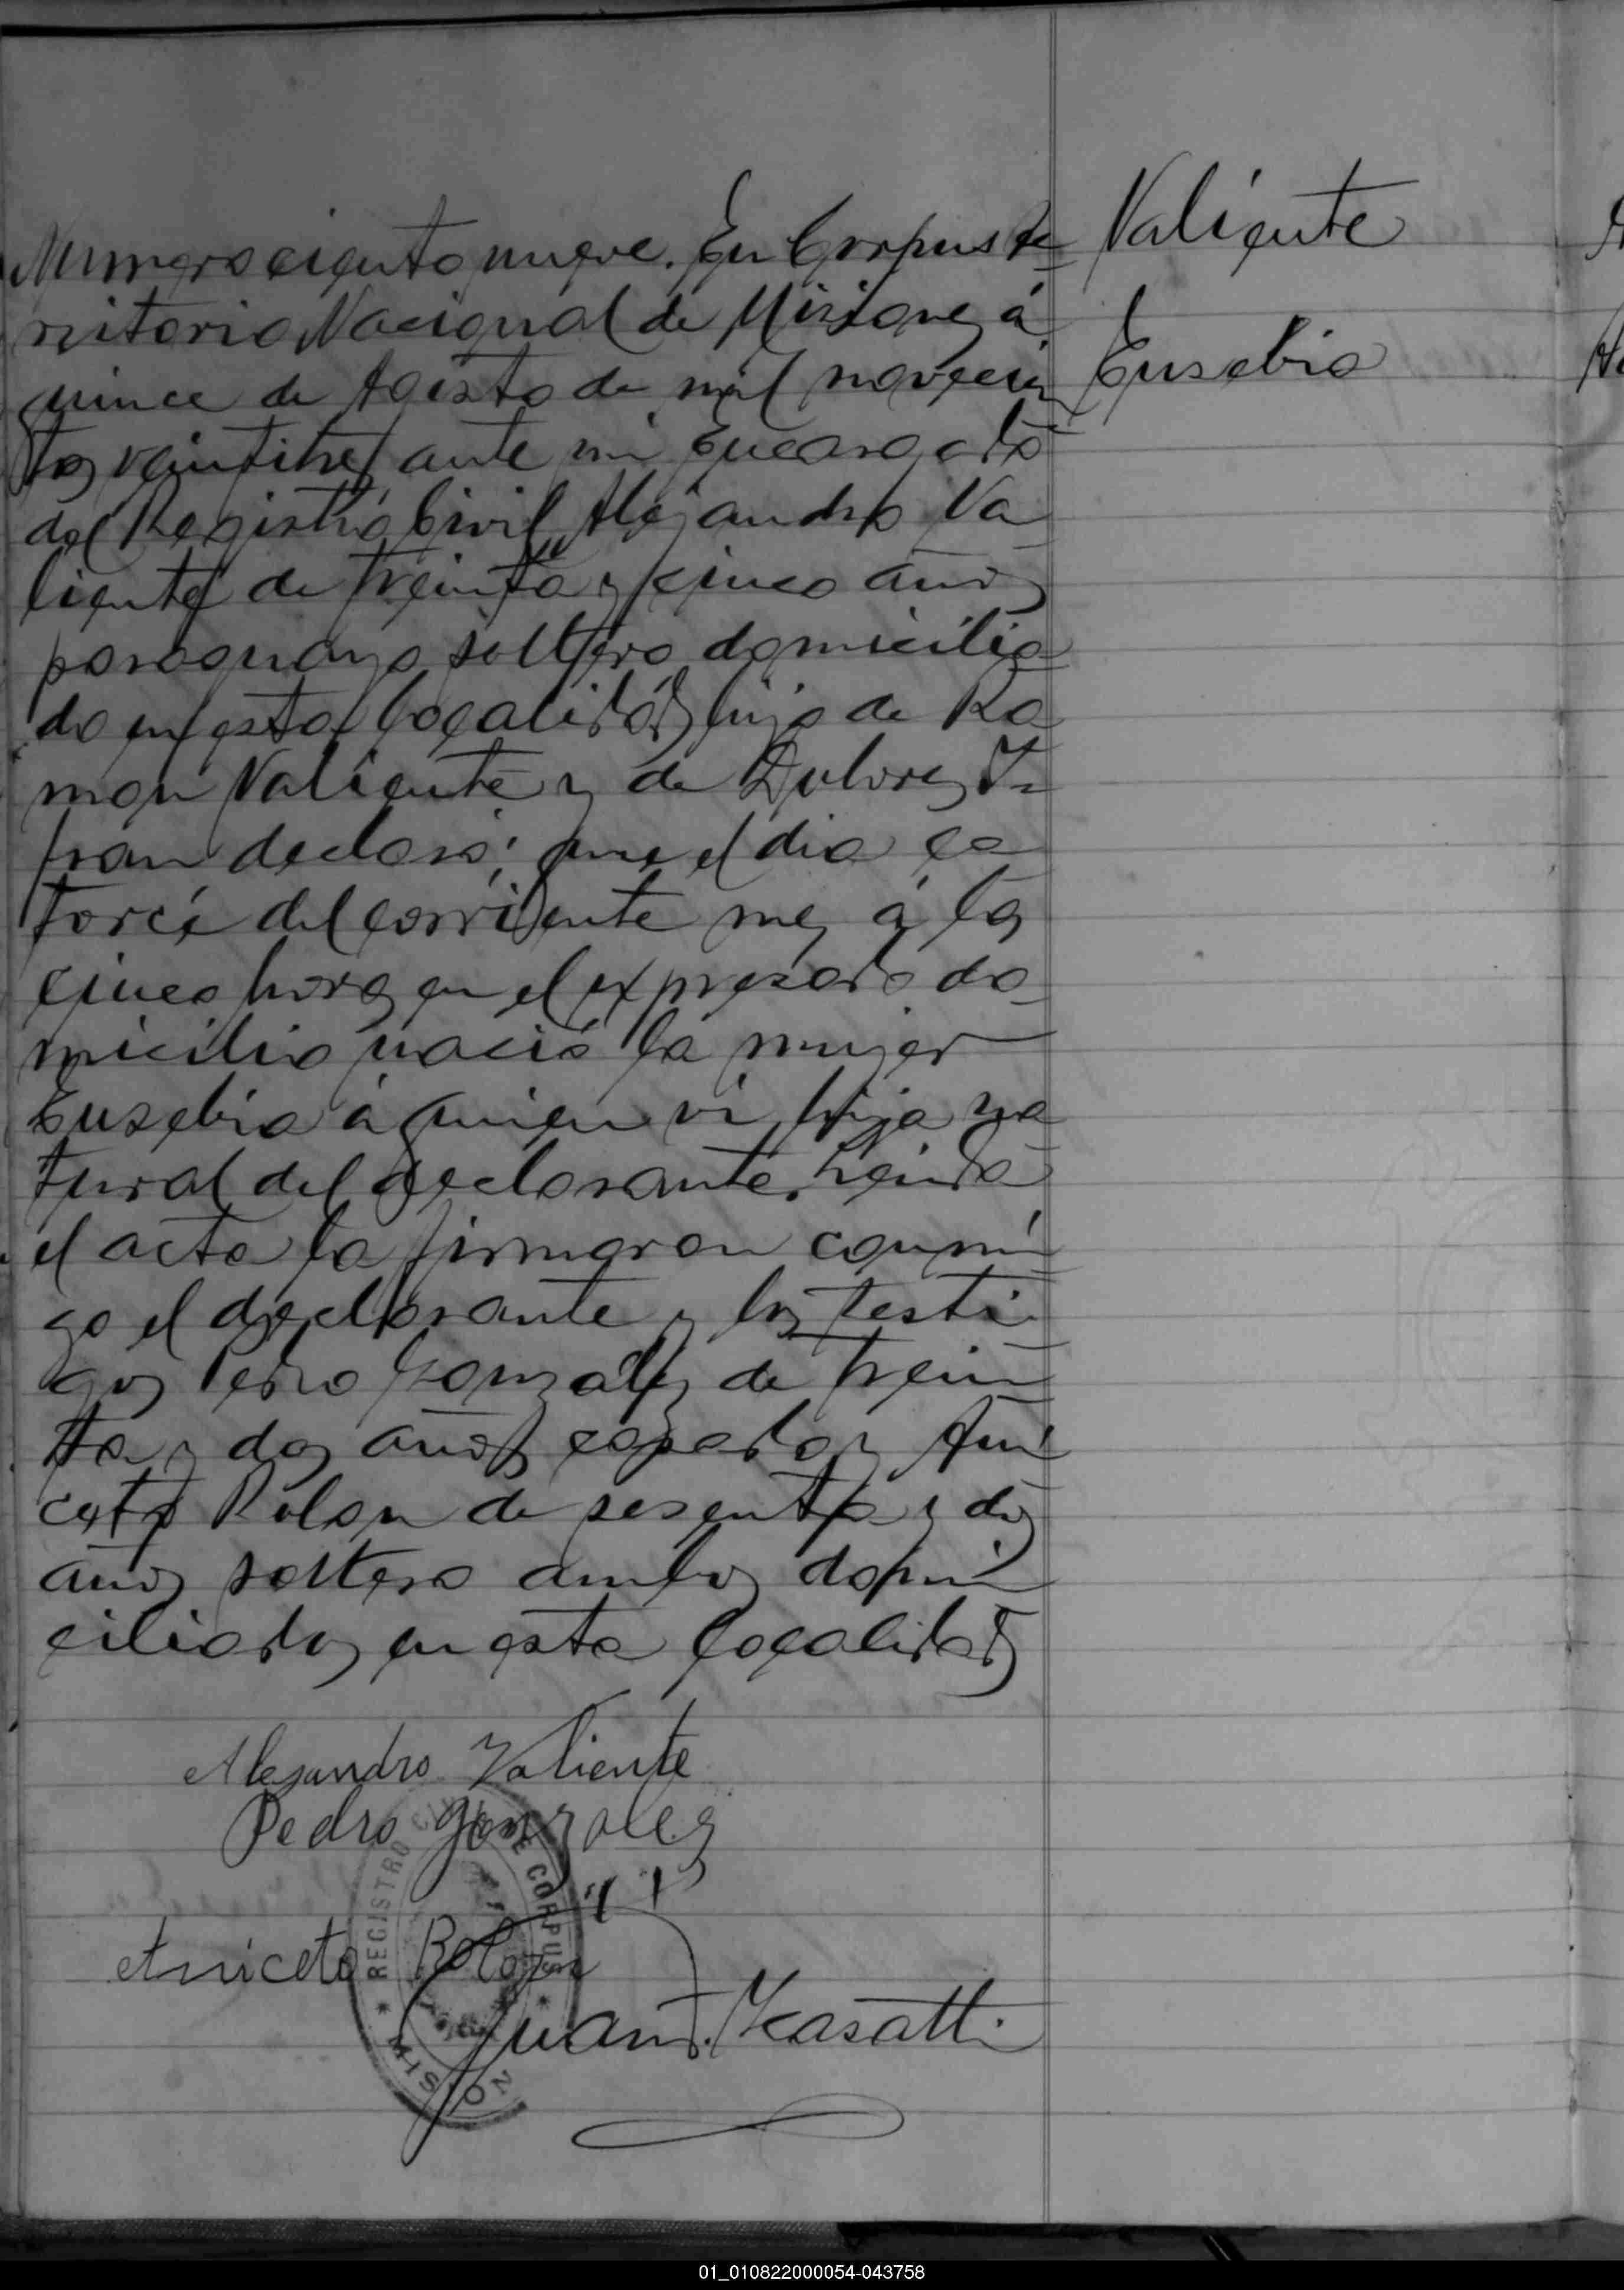 Numero ciento nueve. En Corpus te=
rritorio Nacional de Misiones á
quince de Agosto de mil novecien
tos veintitres ante mi Encargado
del Registro Civil, Alejandro Va
liente de treinta y cinco años
paraguayo soltero domicilia=
do en esta localidad hijo de Ra
mon Valiente y de Dolores In=
fran declaró: que el dia ca
torce del corriente mes á las
cinco horas en el expresado do
micilio nació la mujer
Eusebia á quien vi, hija na
tural del declarante. Leida
el acta la firmaron conmi
go el declarante y los testi
gos Pedro Gonzalez de trein
ta y dos años casado y Ani
ceto Rolon de sesenta y dos
años soltero ambos domi
ciliados en esta localidad
Alejandro Valiente
Pedro Gonzalez
Aniceto Rolon
Juan Casatti
REGISTRO CIVIL DE CORPUS
* MISIONES *
Valiente
Eusebia
01_010822000054-043758